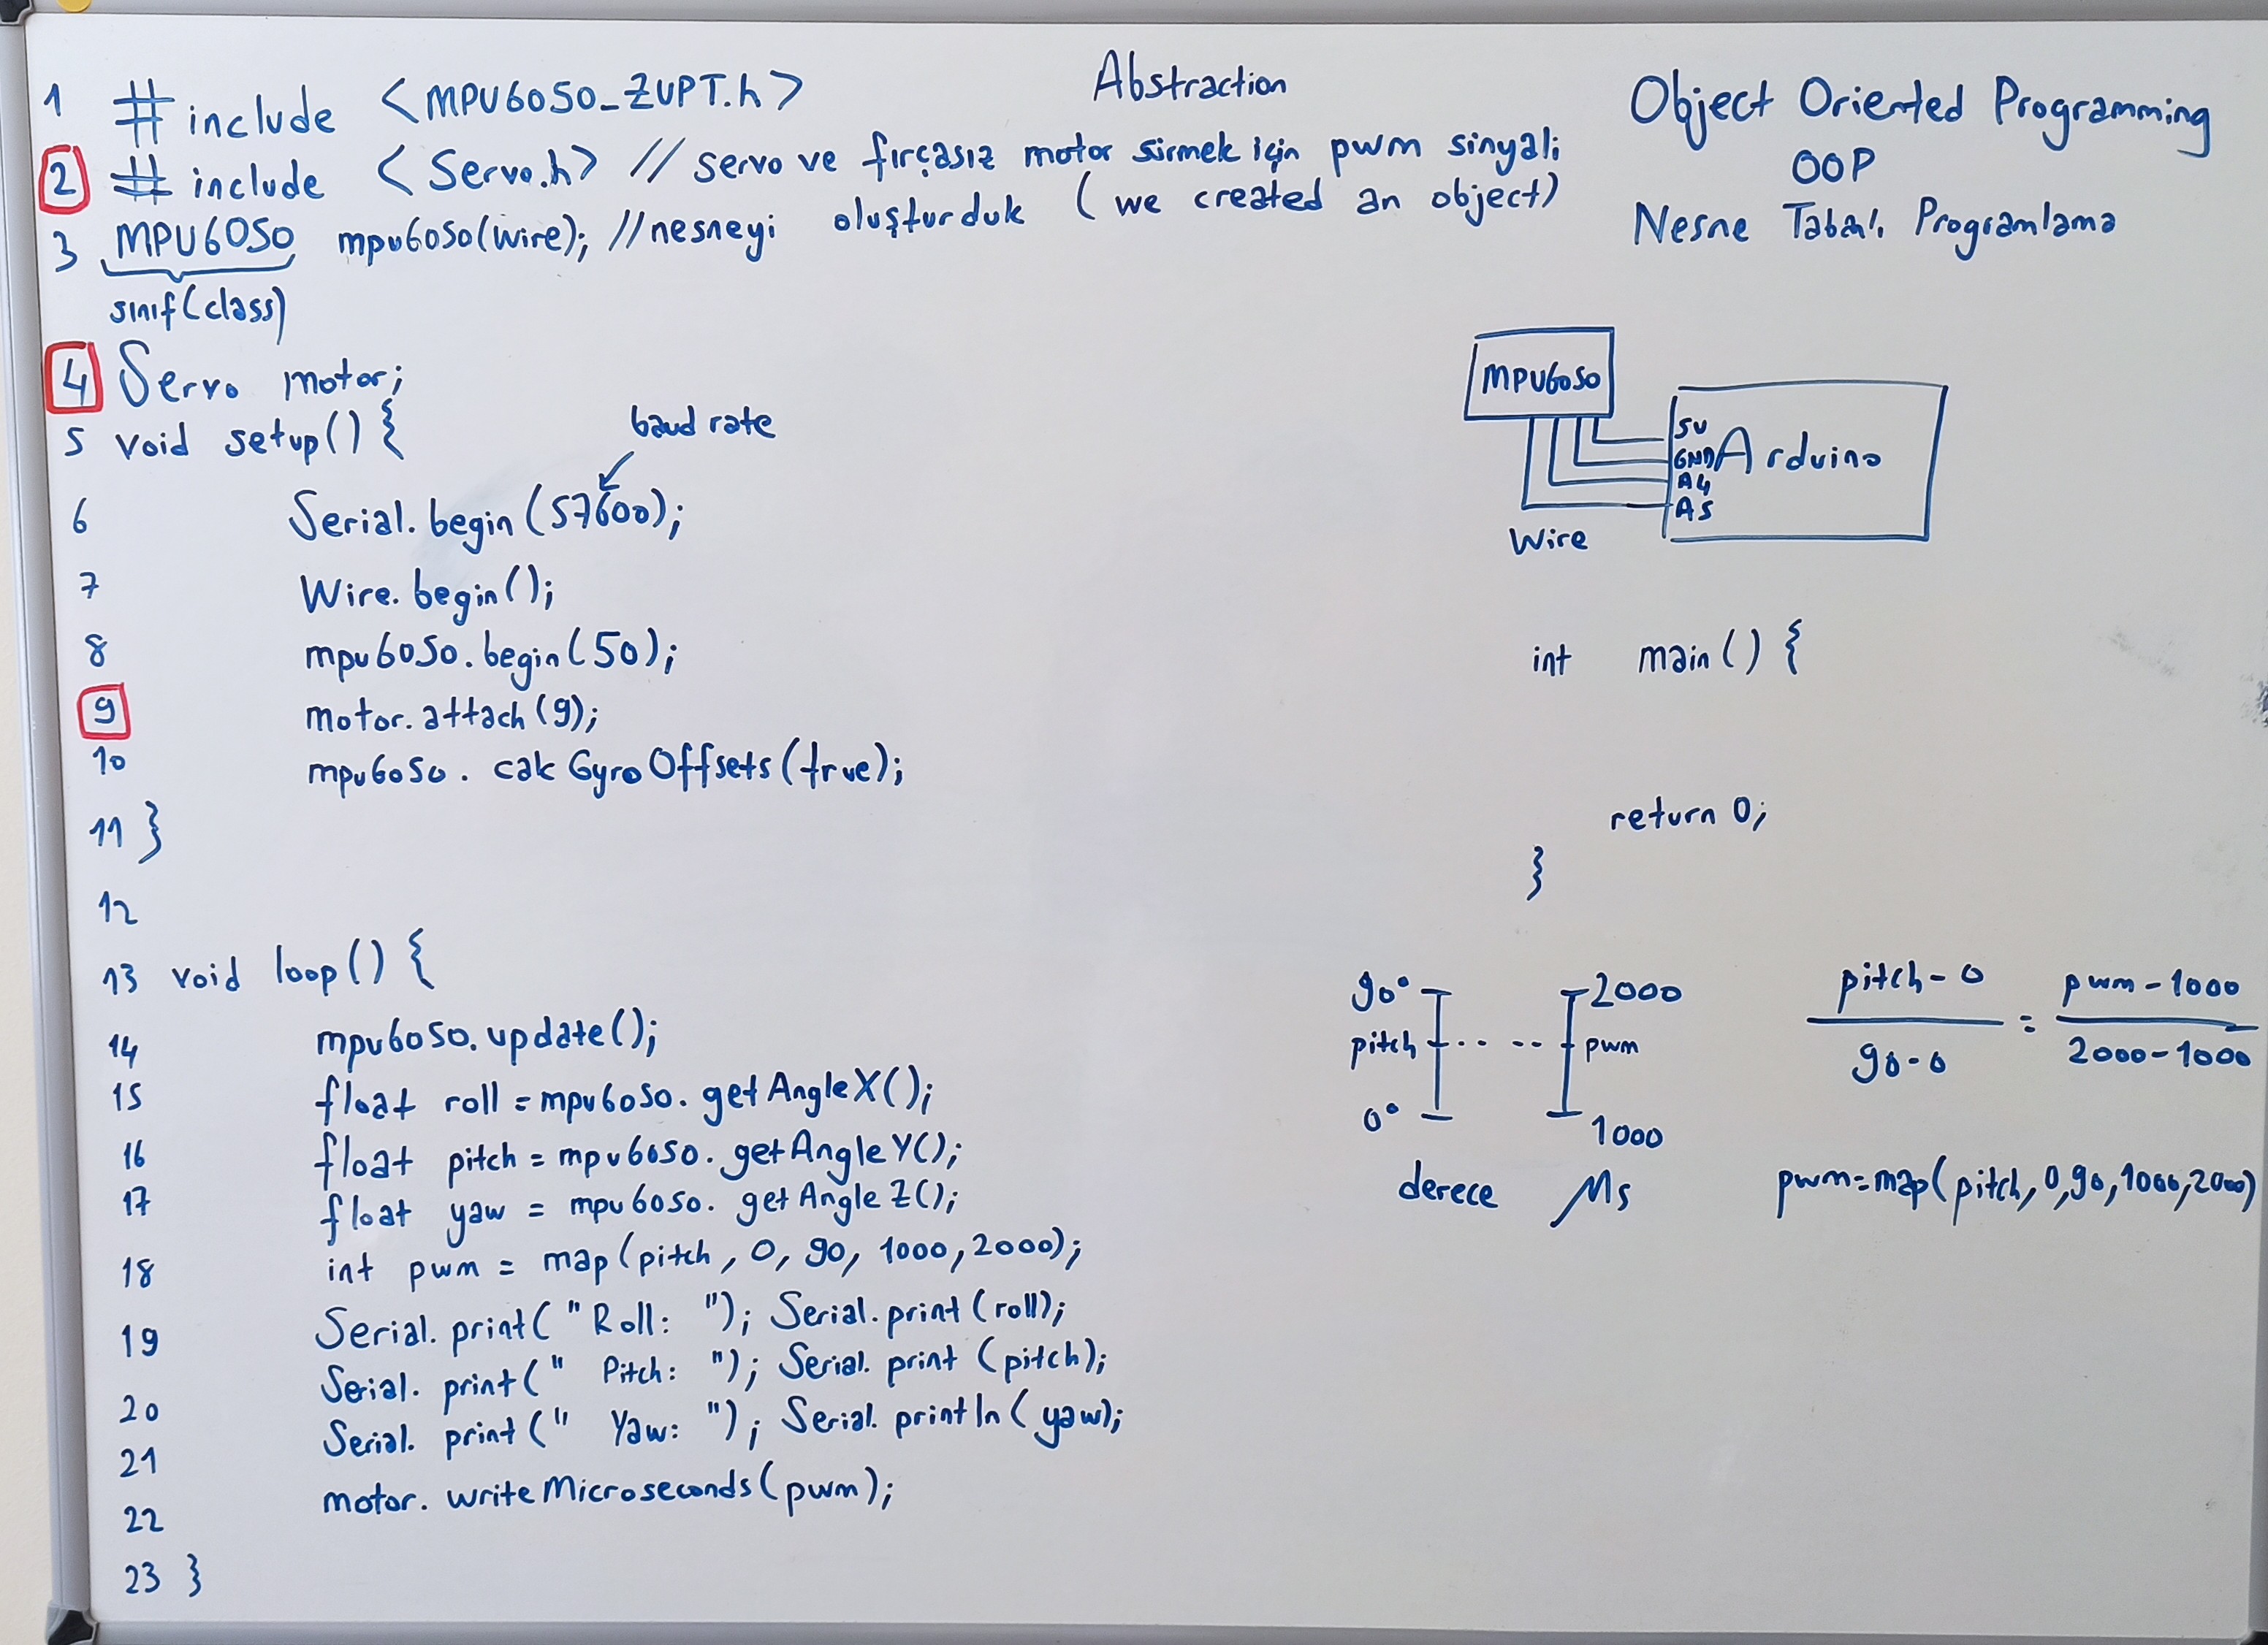 Abstraction
Object Oriented Programming
OOP
Nesne Tabanlı Programlama
1 #include <MPU6050_ZUPT.h>
2 #include <Servo.h> // servo ve fırçasız motor sürmek için pwm sinyali
3 MPU6050 mpu6050(Wire); //nesneyi oluşturduk (we created an object)
sınıf(class)
4 Servo motor;
5 void setup() {
baud rate
6 Serial.begin(57600);
7 Wire.begin();
8 mpu6050.begin(50);
9 motor.attach(9);
10 mpu6050.calcGyroOffsets(true);
11 }
12
13 void loop() {
14 mpu6050.update();
15 float roll = mpu6050.getAngleX();
16 float pitch = mpu6050.getAngleY();
17 float yaw = mpu6050.getAngleZ();
18 int pwm = map(pitch, 0, 90, 1000, 2000);
19 Serial.print("Roll: "); Serial.print(roll);
20 Serial.print(" Pitch: "); Serial.print(pitch);
21 Serial.print(" Yaw: "); Serial.println(yaw);
22 motor.writeMicroseconds(pwm);
23 }
MPU6050
Arduino
5V
GND
A4
A5
Wire
int main() {
return 0;
}
90° 2000
pitch pwm
0° 1000
derece Ms
pitch-0 / 90-0 = pwm-1000 / 2000-1000
pwm=map(pitch,0,90,1000,2000)